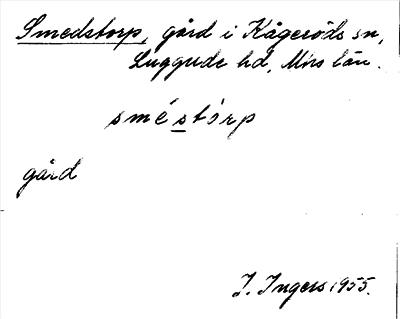 Smedstorp, gård i Kågeröds sn,
Luggude hd, Mhs län.
smé̱stórp
gård
I. Ingers 1955.